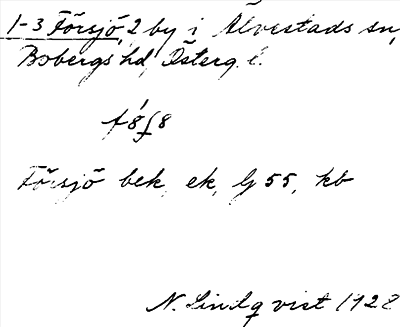 1-3 Försjö, 2 by i Älvestads sn,
Bobergs hd, Österg. l.
Försjö bek, ek, lj 55, kb
N. Lindqvist 1922